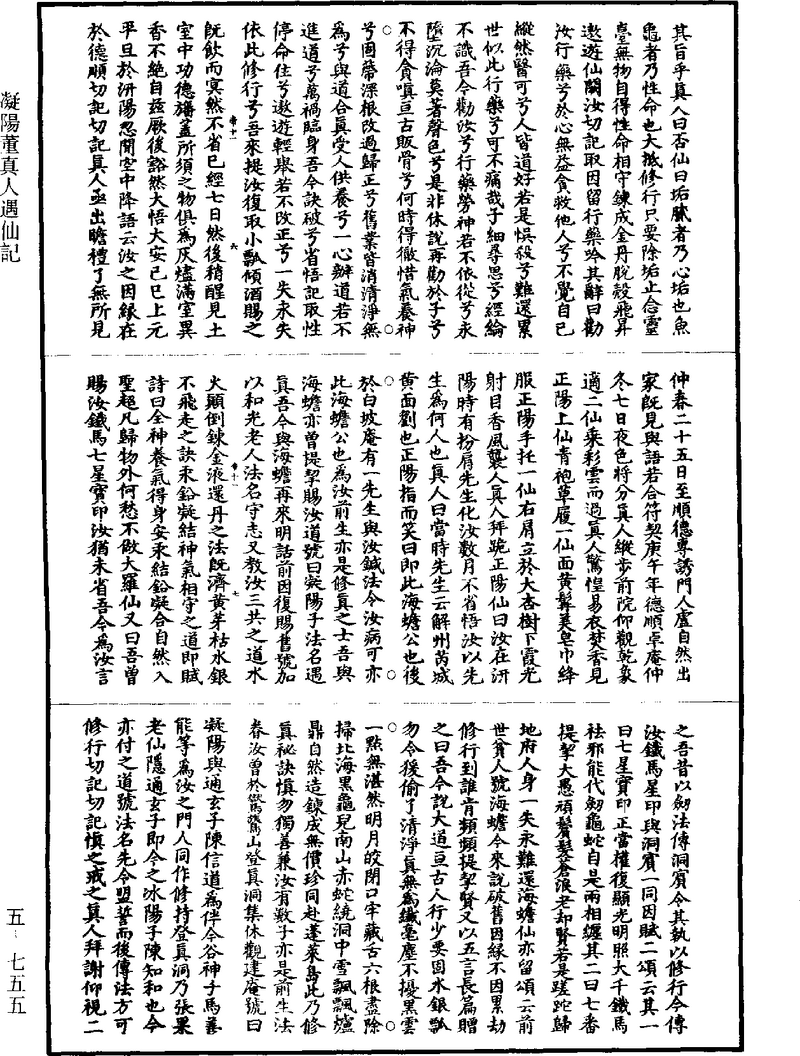 凝陽董真人遇仙記
五‧七五五
其旨乎真人曰否仙曰垢膩者乃心垢也魚
龜者乃性命也大抵修行只要除垢止念靈
臺無物自得性命相守鍊成金丹脫殼飛昇
遨遊仙闕汝切記取因留行藥吟其辭曰勸
汝行藥兮於心無益貪救他人兮不覺自己
縱然醫可兮人皆道好若是悞殺兮難還累
世似此行藥兮可不痛哉子細尋思兮經綸
不識吾今勸汝兮行藥勞神若不依從兮永
墮沉淪莫著聲色兮是非休說再勸於子兮
不得貪嗔亘古販骨兮何時得徹惜氣養神
兮固蔕深根改過歸正兮舊業皆消清淨無
為兮與道合真受人供養兮一心辦道若不
進道兮萬禍臨身吾今訣破兮省悟記取性
停命住兮遨遊輕舉若不改正兮一失永失
依此修行兮吾來提汝復取小瓢傾酒賜之
既飲而冥然不省已經七日然後稍醒見土
室中功德旛蓋所須之物俱為灰燼滿室異
香不絕自茲厥後豁然大悟大安己巳上元
平旦於汧陽忽聞空中降語云汝之因緣在
於德順切記切記真人亟出瞻禮了無所見
仲春二十五日至順德專誘門人盧自然出
家既見與語若合符契庚午年德順卓庵仲
冬七日夜色將分真人縱步前院仰觀乾象
適二仙乘彩雲而過真人驚惶易衣焚香見
正陽上仙青袍草履一仙面黃髯美皂巾絳
服正陽手托一仙右肩立於大杏樹下霞光
射目香風襲人真人拜跪正陽仙曰汝在汧
陽時有扮肩先生化汝數月不省悟汝以先
生為何人也真人曰當時先生云解州芮城
黃面劉也正陽指而笑曰即此海蟾公也後
於白坡庵有一先生與汝鍼法令汝病可亦
此海蟾公也為汝前生亦是修真之士吾與
海蟾亦曾提挈賜汝道號曰凝陽子法名遇
真吾今與海蟾再來明話前因復賜舊號加
以和光老人法名守志又教汝三共之道水
火顛倒鍊金液還丹之法既濟黃芽枯水銀
不飛走之訣汞鉛凝結神氣相守之道即賦
詩曰全神養氣得身安汞結鉛凝合自然入
聖超凡歸物外何愁不做大羅仙又曰吾曾
賜汝鐵馬七星寶印汝猶未省吾今為汝言
之吾昔以劒法傳洞賓令其執以修行今傳
汝鐵馬星印與洞賓一同因賦二頌云其一
曰七星寶印正當權復顯光明照大千鐵馬
祛邪能代劒龜蛇自是兩相纏其二曰七番
提挈大愚頑鬢髮蒼浪老却賢若是蹉跎歸
地府人身一失永難還海蟾仙亦留頌云前
世貧人號海蟾今來說破舊因緣不因累劫
修行到誰肯頻頻提挈賢又以五言長篇贈
之曰吾今說大道亘古人行少要固水銀瓢
勿令猨偷了清淨真無為纖毫塵不擾黑雲
一點無湛然明月皎閉口牢藏舌六根盡除
掃北海黑龜兒南山赤蛇繞洞中雪飄飄爐
鼎自然造鍊成無價珍同赴蓬萊島此乃修
真祕訣慎勿獨善兼汝有數子亦是前生法
眷汝曾於鷲鷲山登真洞集休觀建庵號曰
凝陽與通玄子陳信道為伴今谷神子馬善
能等為汝之門人同作修持登真洞乃張果
老仙隱通玄子即今之冰陽子陳知和也今
亦付之道號法名先令盟誓而後傳法方可
修行切記切記慎之戒之真人拜謝仰視二